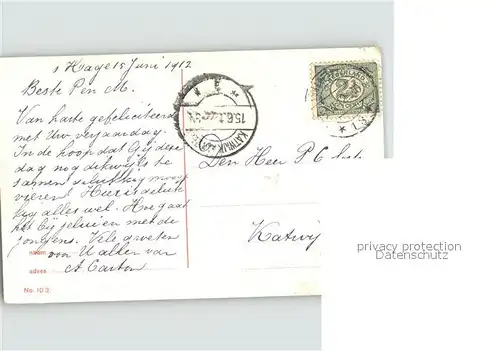 's Hage 15 Juni 1912
Beste P en M.
Van harte gefeliciteerd
met Uw verjaardag.
In de hoop dat Gij deze
dag nog dikwijls te
samen gelukkig moogt
vieren! Hier is geluk
kig alles wel. Hoe gaat
het bij jelui en met de
jongens. Vele groeten
van U aller van
A Carton
naam
adres
No. 103
15.6.1
KATWIJK AAN
NEDERLAND
2½
Den Heer P C
Katwij
privacy protection
Datenschutz